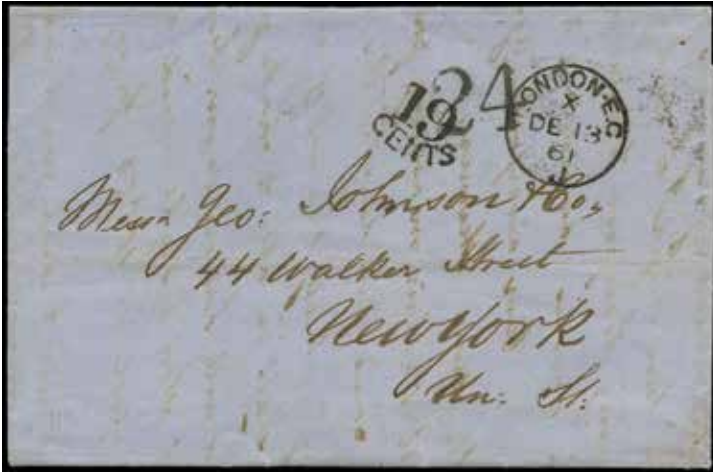 19 CENTS
24
LONDON·E.C
X
DE 13
61
Messrs Geo: Johnson & Co,
44 Walker Street
New York
Un: St: